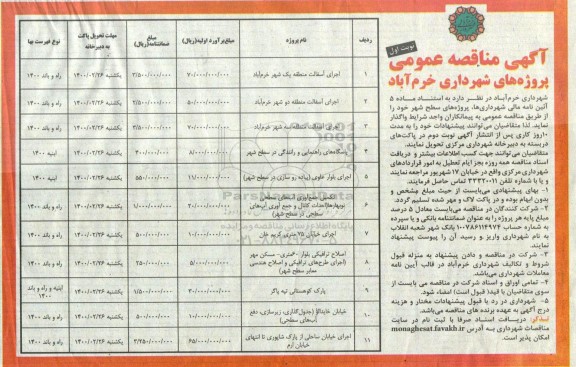 نوبت اول
آگهی مناقصه عمومی
پروژه‌های شهرداری خرم‌آباد
شهرداری خرم‌آباد در نظر دارد به استناد ماده ۵
آئین نامه مالی شهرداری‌ها، پروژه‌های سطح شهر خود را
از طریق مناقصه عمومی به پیمانکاران واجد شرایط واگذار
نماید. لذا متقاضیان می‌توانند پیشنهادات خود را به مدت
۱۰روز کاری پس از انتشار آگهی نوبت دوم در پاکت‌های
دربسته به دبیرخانه شهرداری مرکزی تحویل نمایند.
متقاضیان می‌توانند جهت کسب اطلاعات بیشتر و دریافت
اسناد مناقصه همه روزه بجز ایام تعطیل به امور قراردادهای
شهرداری مرکزی واقع در خیابان ۱۷ شهریور مراجعه نمایند
و یا با شماره تلفن ۳۳۳۲۰۰۱۱ تماس حاصل فرمایند.
۱- بهای پیشنهادی می‌بایست از حیث مبلغ مشخص و
بدون ابهام بوده و در پاکت لاک و مهر شده تسلیم گردد.
۲- شرکت کنندگان در مناقصه می‌بایست معادل ۵ درصد
مبلغ پایه هر پروژه را به عنوان ضمانتنامه بانکی و یا سپرده
به شماره حساب ۱۰۰۷۸۶۱۱۴۹۷۴ بانک شهر شعبه انقلاب
به نام شهرداری واریز و رسید آن را پیوست پیشنهاد
نمایند.
۳- شرکت در مناقصه و دادن پیشنهاد به منزله قبول
شروط و تکالیف شهرداری خرم‌آباد در قالب آیین نامه
معاملات شهرداری می‌باشد.
۴- تمامی اوراق و اسناد شرکت در مناقصه می بایست از
سوی متقاضیان با قید( قبول است) امضاء شود.
۵- شهرداری در رد یا قبول پیشنهادات مختار و هزینه
درج آگهی به عهده برنده های مناقصه می‌باشد.
تذکر: دریافت اسناد صرفا با ثبت نام در سایت
مناقصات شهرداری به آدرس monaghesat.favakh.ir
امکان پذیر است.
ردیف نام پروژه مبلغ‌برآورد اولیه(ریال) مبلغ ضمانتنامه(ریال) مهلت تحویل پاکت به دبیرخانه نوع فهرست بها
۱ اجرای آسفالت منطقه یک شهر خرم‌آباد ۷۰/۰۰۰/۰۰۰/۰۰۰ ۳/۵۰۰/۰۰۰/۰۰۰ یکشنبه ۱۴۰۰/۰۲/۲۶ راه و باند ۱۴۰۰
۲ اجرای آسفالت منطقه دو شهر خرم‌آباد ۵۰/۰۰۰/۰۰۰/۰۰۰ ۲/۵۰۰/۰۰۰/۰۰۰ یکشنبه ۱۴۰۰/۰۲/۲۶ راه و باند ۱۴۰۰
۳ اجرای آسفالت منطقه سه شهر خرم‌آباد ۷۰/۰۰۰/۰۰۰/۰۰۰ ۳/۵۰۰/۰۰۰/۰۰۰ یکشنبه ۱۴۰۰/۰۲/۲۶ راه و باند ۱۴۰۰
۴ راهنمایی و رانندگی در سطح شهر ۸/۰۰۰/۰۰۰/۰۰۰ ۴۰۰/۰۰۰/۰۰۰ یکشنبه ۱۴۰۰/۰۲/۲۶ ابنیه ۱۴۰۰
۵ اجرای بلوار علوی (پیاده رو سازی در سطح شهر) ۱۱/۰۰۰/۰۰۰/۰۰۰ ۵۵۰/۰۰۰/۰۰۰ یکشنبه ۱۴۰۰/۰۲/۲۶ ابنیه ۱۴۰۰
۶ جمع آوری آبهای سطحی
کانال و جمع آوری آب‌های
سطحی در سطح شهر) ۲۰/۰۰۰/۰۰۰/۰۰۰ ۱/۰۰۰/۰۰۰/۰۰۰ یکشنبه ۱۴۰۰/۰۲/۲۶ راه و باند ۱۴۰۰
۷ اجرای خیابان ۷۵ متری کریم خان ۱۰/۰۰۰/۰۰۰/۰۰۰ ۵۰۰/۰۰۰/۰۰۰ یکشنبه ۱۴۰۰/۰۲/۲۶ راه و باند ۱۴۰۰
۸ اصلاح ترافیکی بلوار ۶۰متری- مسکن مهر
(اجرای طرح‌های ترافیکی و اصلاح هندسی
معابر سطح شهر) ۵/۰۰۰/۰۰۰/۰۰۰ ۲۵۰/۰۰۰/۰۰۰ یکشنبه ۱۴۰۰/۰۲/۲۶ راه و باند ۱۴۰۰
۹ پارک کوهستانی تپه پاگر ۳۰/۰۰۰/۰۰۰/۰۰۰ ۱/۵۰۰/۰۰۰/۰۰۰ یکشنبه ۱۴۰۰/۰۲/۲۶ ابنیه و راه و باند ۱۴۰۰
۱۰ خیابان (جدول‌گذاری، زیرسازی، دفع
آب‌های سطحی) ۱۰/۰۰۰/۰۰۰/۰۰۰ ۵۰۰/۰۰۰/۰۰۰ یکشنبه ۱۴۰۰/۰۲/۲۶ راه و باند ۱۴۰۰
۱۱ اجرای خیابان ساحلی از پارک شاپوری تا انتهای
خیابان ارم ۶۵/۰۰۰/۰۰۰/۰۰۰ ۳/۲۵۰/۰۰۰/۰۰۰ یکشنبه ۱۴۰۰/۰۲/۲۶ راه و باند ۱۴۰۰